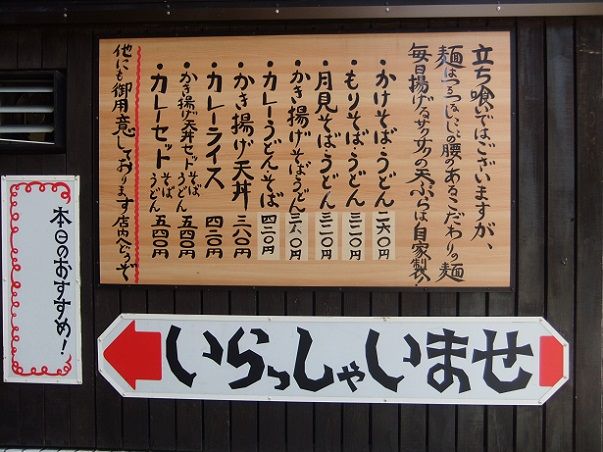 立ち喰いではございますが、
麺はつるつるしこしこの腰のあるこだわりの麺
毎日揚げるサクサクの天ぷらは自家製！
・かけそば・うどん 二六〇円
・もりそば・うどん 三二〇円
・月見そば・うどん 三二〇円
・かき揚げそばうどん 三八〇円
・カレーうどんそば 四二〇円
・かき揚げ天丼 三八〇円
・カレーライス 四二〇円
・かき揚げ天丼セットそばうどん 五四〇円
・カレーセットそばうどん 五四〇円
他にも御用意しております店内へどうぞ
本日のおすすめ！
いらっしゃいませ